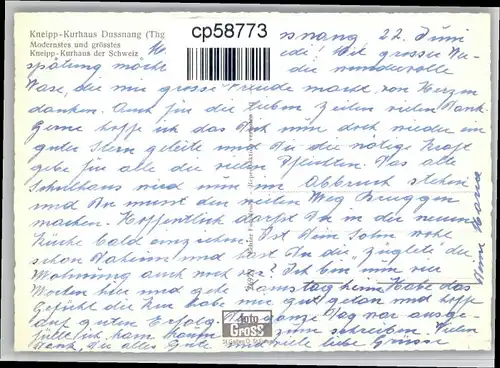 Kneipp-Kurhaus Dussnang (Thg
Modernstes und grösstes
Kneipp-Kurhaus der Schweiz
cp58773
snang 22. Juni
Mit grosser Ver-
spätung möcht die wundervolle
Vase, die mir grosse Freude macht von Herzen
danken. Auch für die lieben Zeilen vielen Dank.
Gerne hoffe ich das Dich nun doch wieder ein
guter Stern geleite und Du die nötige Kraft
gebe für alle die vielen Pflichten. Das alte
Schulhaus wird nun im Abbruch stehen
und Du musst den weiten Weg Bruggen
machen. Hoffentlich darfst Du in die neuen
Küche bald einziehen. Ist Dein Sohn wohl
schon daheim und hast Du die "Züglete" der
Wohnung auch noch vor? Ich bin nun vier
Wochen hier und gehe Samstag heim. Habe das
Gefühl die Kur habe mir gut getan und hoffe
auf guten Erfolg. Der ganze Tag war ausge-
füllt, ich kam kaum zum schreiben. Vielen
Dank, Dir alles Gute und viele liebe Grüsse
Foto
Gross
St. Gallen